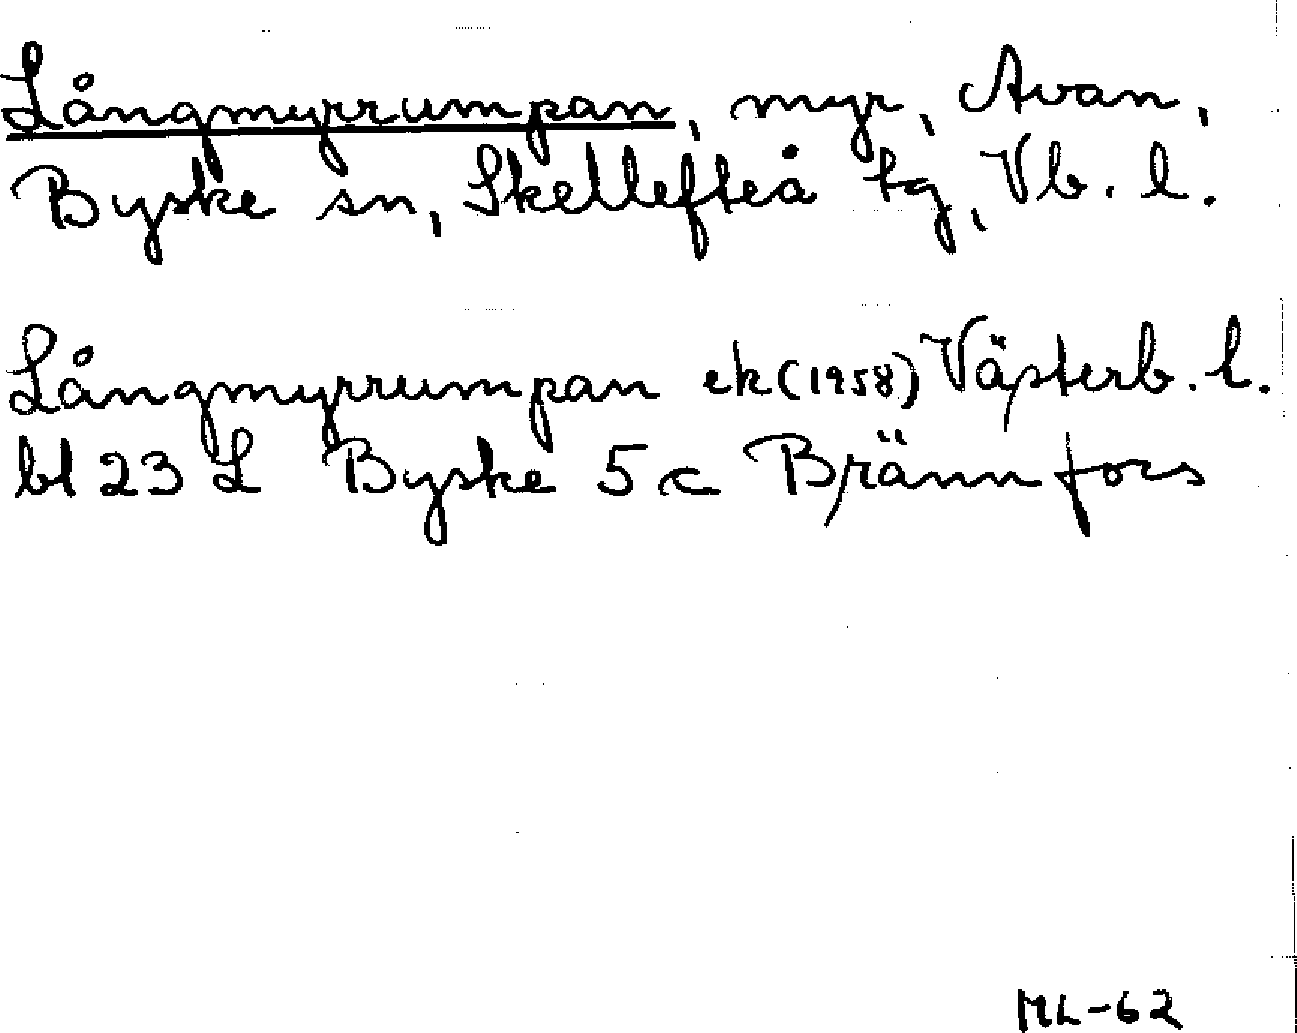 Långmyrrumpan, myr, Avan,
Byske sn, Skellefteå tg, Vb. l.
Långmyrrumpan ek (1958) Västerb. l.
bl 23 L Byske 5 c Brännfors
ML-62